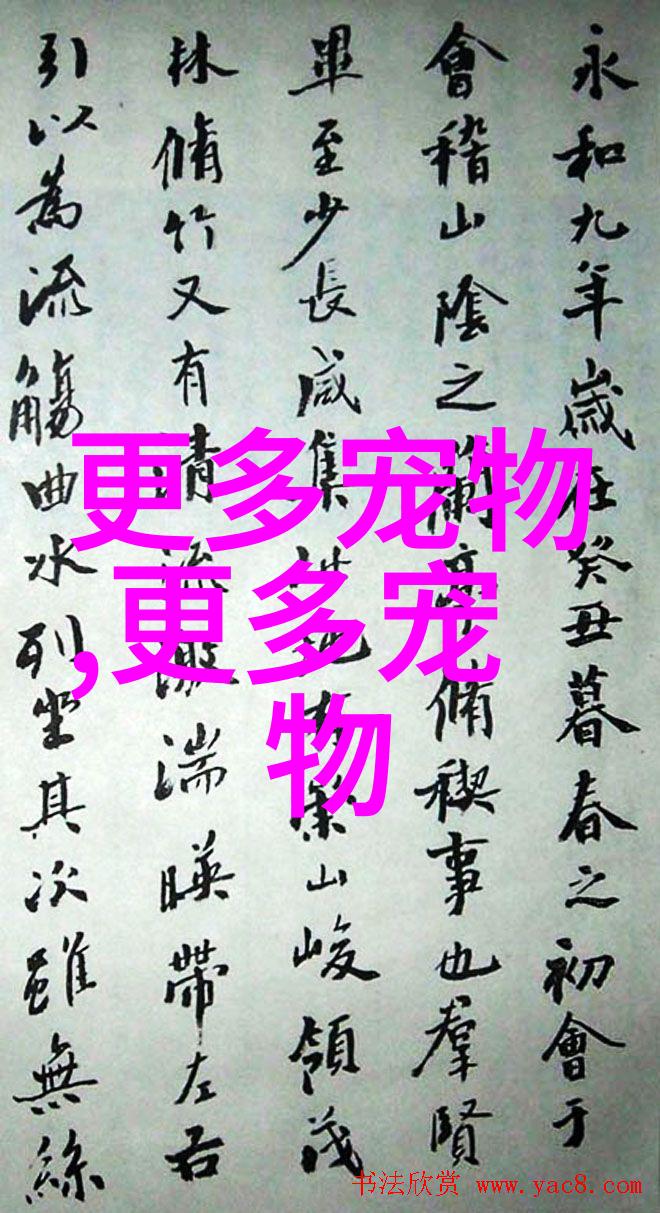 永和九年歲在癸丑暮春之初會于
會稽山陰之蘭亭脩稧事也羣賢
畢至少長咸集此地有崇山峻領茂
林脩竹又有清流激湍暎帶左右
引以為流觴曲水列坐其次雖無絲
更多宠物
,更多宠
物
书法欣赏 www.yac8.com